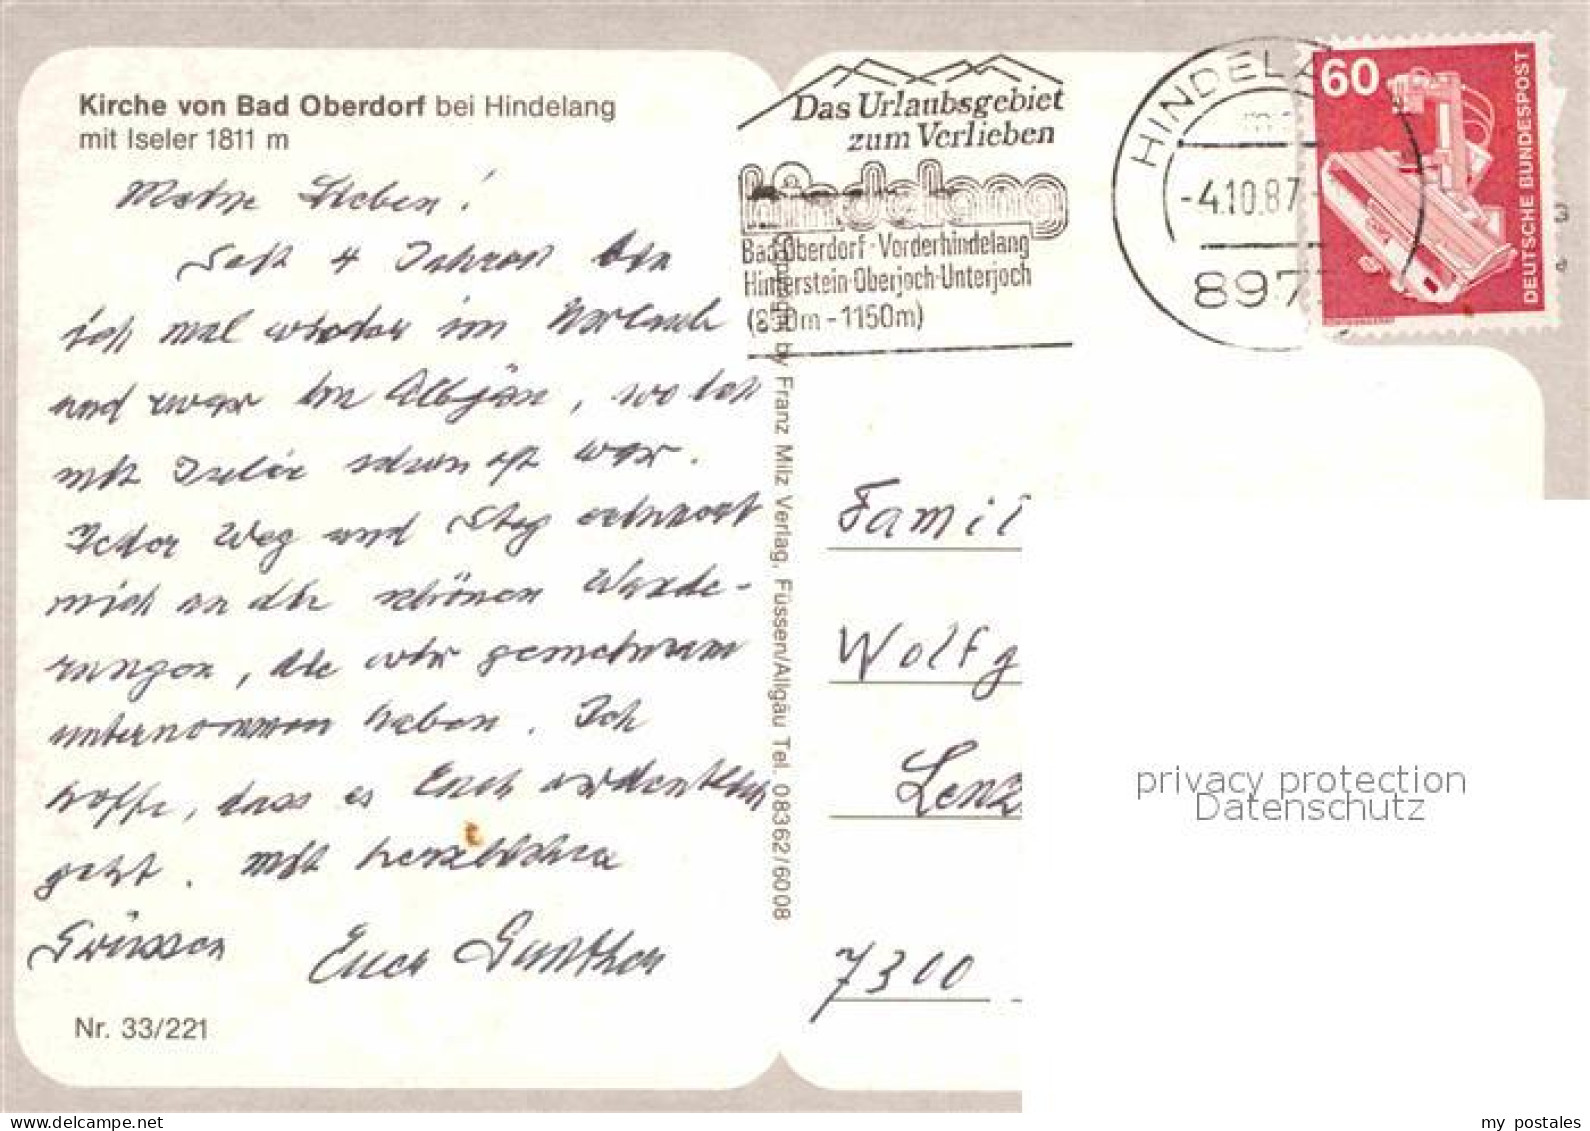 Kirche von Bad Oberdorf bei Hindelang
mit Iseler 1811 m
Meine Lieben!
Seit 4 Jahren bin
ich mal wieder im Urlaub
und zwar im Allgäu, wo ich
mit schon oft war.
Jeder Weg und Steg erinnert
mich an die schönen Wande-
rungen, die wir gemeinsam
unternommen haben. Ich
hoffe, dass es Euch ordentlich
geht. Mit herzlichen
Grüssen Euer Günther
Nr. 33/221
Copyright by Franz Milz Verlag, Füssen/Allgäu Tel. 08362/6008
Das Urlaubsgebiet
zum Verlieben
hindelang
Bad Oberdorf-Vorderhindelang
Hinterstein-Oberjoch-Unterjoch
(850m-1150m)
HINDELA
-4.10.87-
897
60
DEUTSCHE BUNDESPOST
Famil
Wolfg
Lenz
7300
privacy protection
Datenschutz
my postales
www.delcampe.net